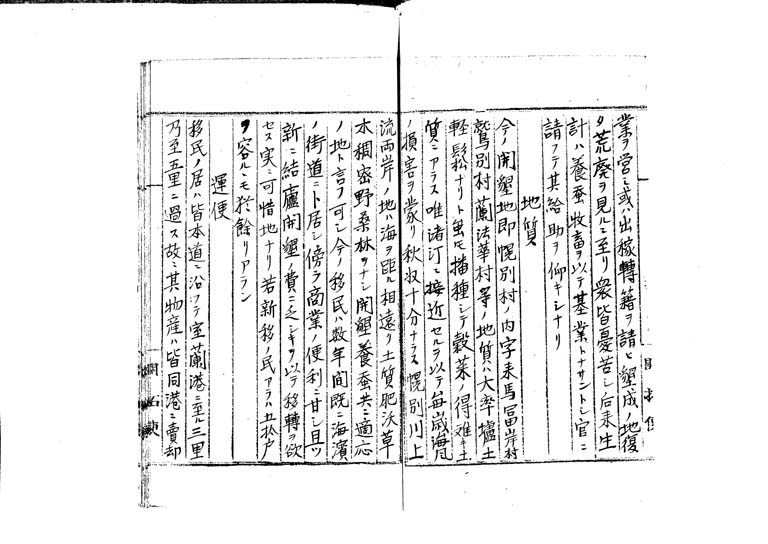 業ヲ営ミ或ハ出稼轉籍ヲ請ヒ墾成ノ地復
タ荒廃ヲ見ルニ至リ衆皆憂苦シ后来生
計ハ養蚕牧畜ヲ以テ基業トナサントシ官ニ
請フテ其給助ヲ仰キシナリ
地質
今ノ開墾地即幌別村ノ内字来馬冨岸村
鷲別村蘭法華村等ノ地質ハ大率壚土
軽鬆ナリト虽モ播種シテ穀菜ノ得難キ土
質ニアラス唯諸汀ニ接近セルヲ以テ毎歳海風
ノ損害ヲ蒙リ秋収十分ナラス幌別川上
流両岸ノ地ハ海ヲ距ル相遠リ土質肥沃草
木稠密野桑林ヲナシ開墾養蚕共ニ適応
ノ地ト言フ可シ今ノ移民ハ数年間既ニ海濱
ノ街道ニト居シ傍ラ商業ノ便利ニ甘シ且ツ
新ニ結廬開墾ノ費ニ乏シキヲ以テ移轉ヲ欲
セス実ニ可惜地ナリ若新移ノ民アラハ五拾戸
ヲ容ルニモ猶餘リアラン
運便
移民ノ居ハ皆本道ニ沿フテ室蘭港ニ至ル三里
乃至五里ニ過ス故ニ其物産ハ皆同港ニ賣却
開拓使